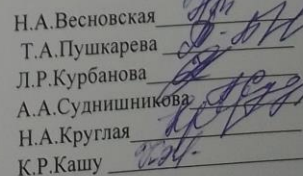 Н.А.Весновская
Т.А.Пушкарева
Л.Р.Курбанова
А.А.Суднишникова
Н.А.Круглая
К.Р.Кашу